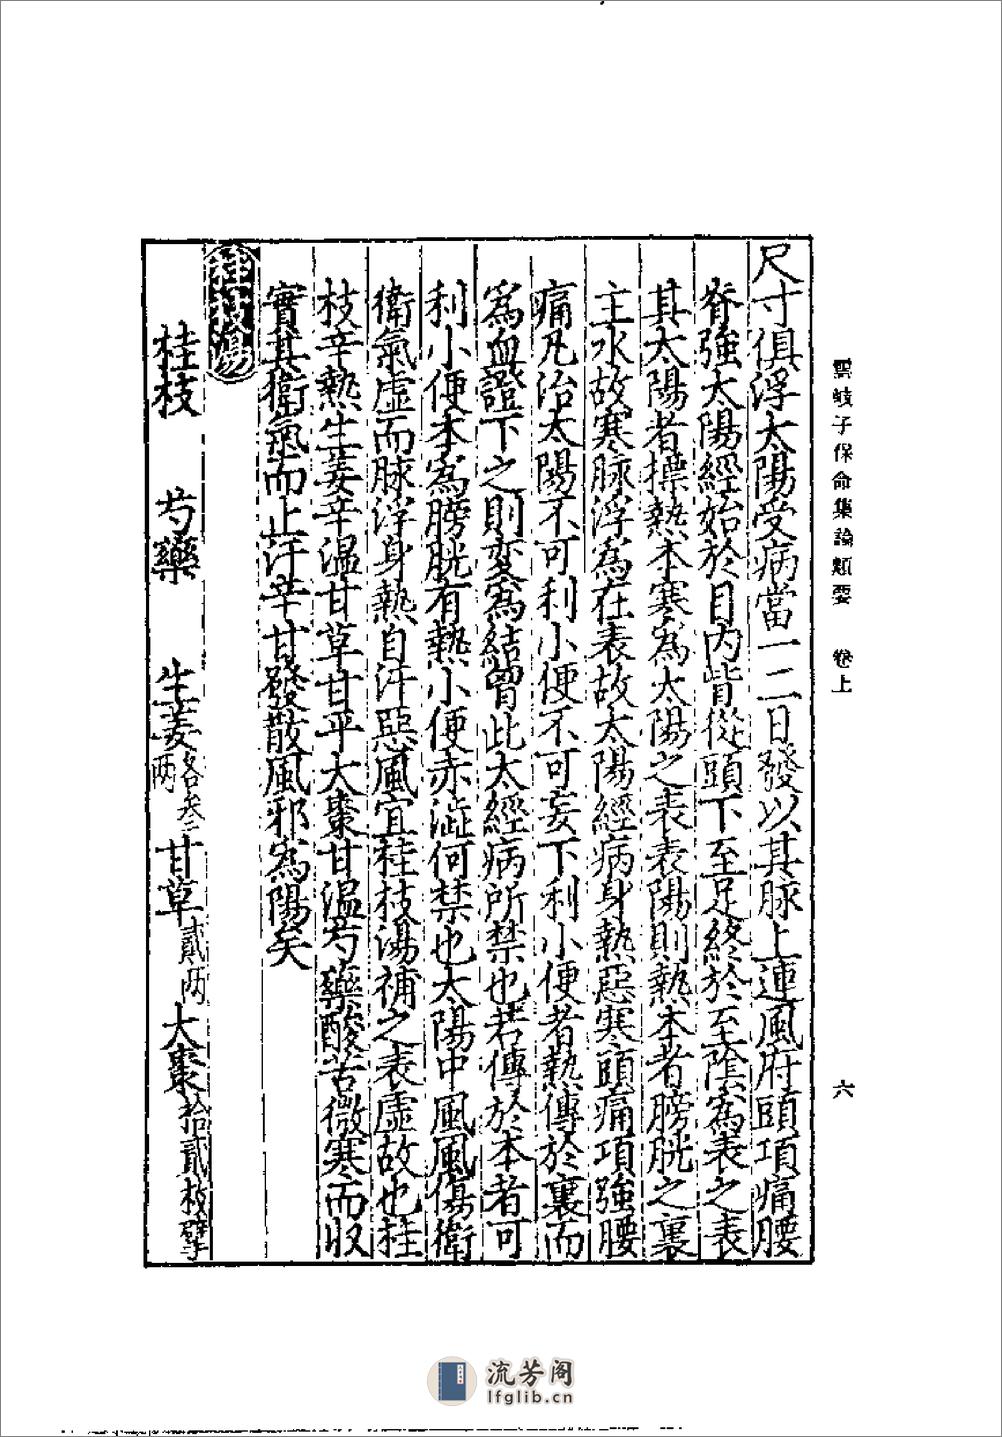 雲岐子保命集論類要 卷上 六
尺寸俱浮太陽受病當一二日發以其脉上連風府頭項痛腰
脊強太陽經始於目內眥從頭下至足終於至陰為表之表
其太陽者標熱本寒為太陽之表表陽則熱本者膀胱之裏
主水故寒脉浮為在表故太陽經病身熱惡寒頭痛項強腰
痛凡治太陽不可利小便不可妄下利小便者熱傳於裏而
為血證下之則変為結胷此太經病所禁也若傳於本者可
利小便本為膀胱有熱小便赤澁何禁也太陽中風風傷衛
衛氣虛而脉浮身熱自汗惡風宜桂枝湯補之表虛故也桂
枝辛熱生姜辛溫甘草甘平大棗甘溫芍藥酸苦微寒而收
實其衛氣而止汗辛甘發散風邪為陽矣
桂枝湯
桂枝 芍藥 生姜各叁兩 甘草貳兩 大棗拾貳枚擘
流芳阁
lfglib.cn